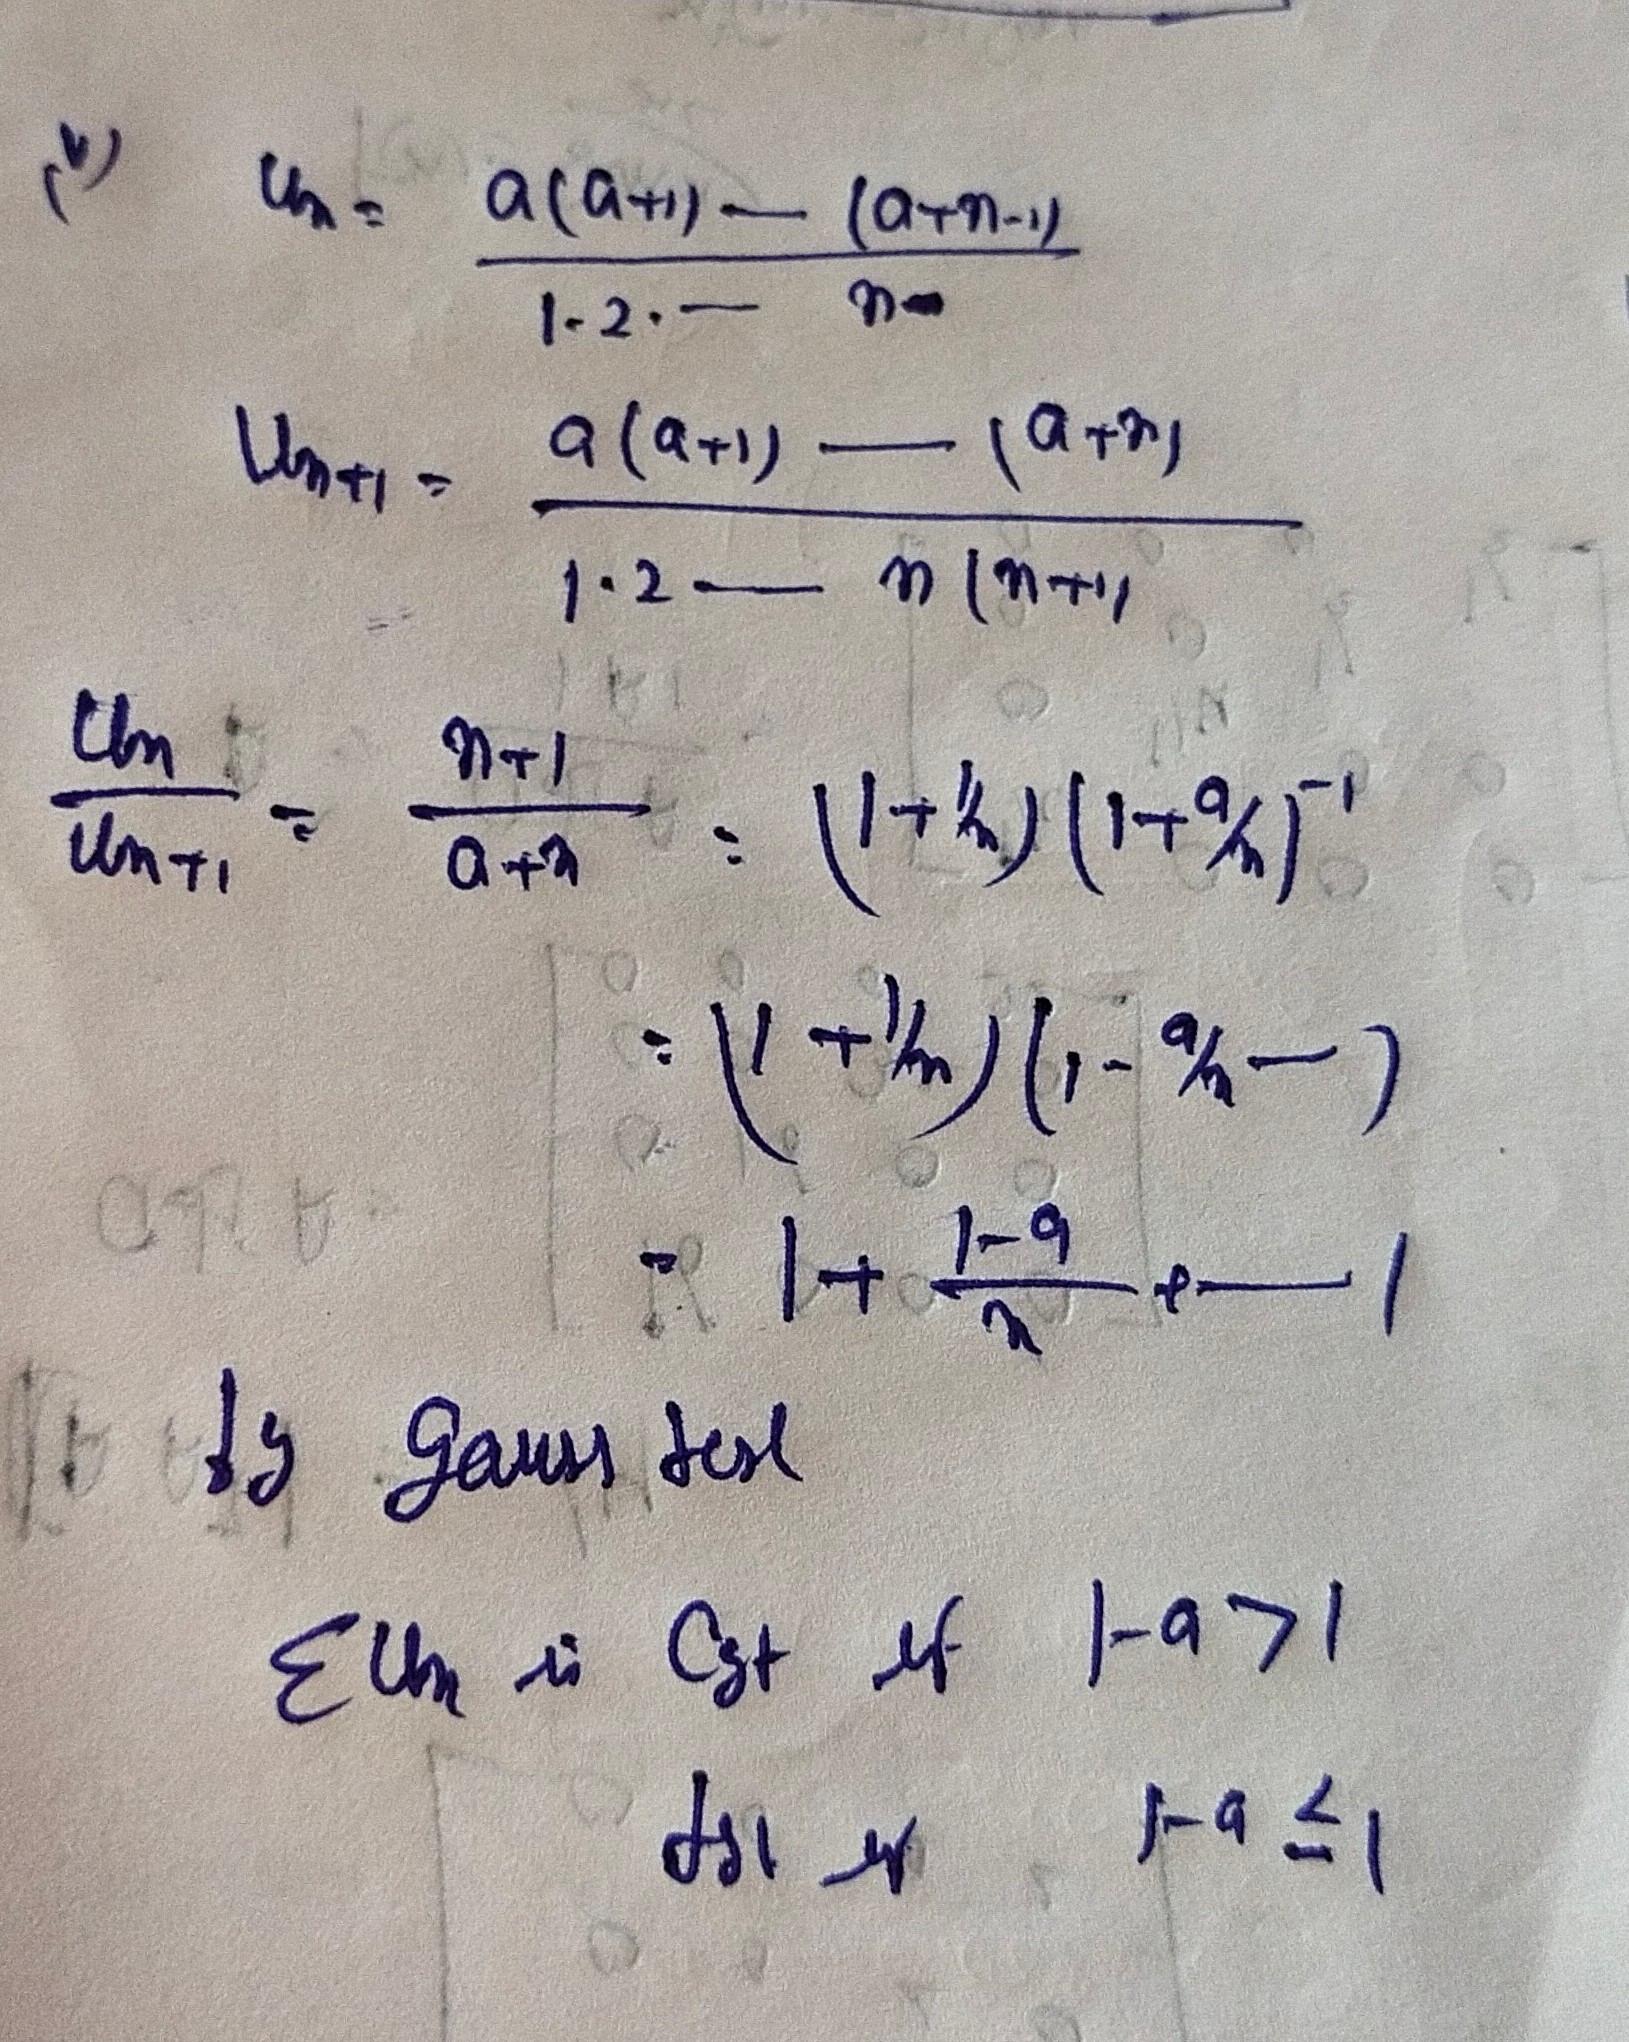 (v) Un = a(a+1) — (a+n-1) / 1·2·— n
Un+1 = a(a+1) — (a+n) / 1·2 — n(n+1)
Un / Un+1 = n+1 / a+n = (1+1/n)(1+a/n)^-1
= (1+1/n)(1-a/n—)
= 1+ 1-a / n + — 1
by Gauss test
ΣUn is Cgt if 1-a>1
dgt if 1-a≤1